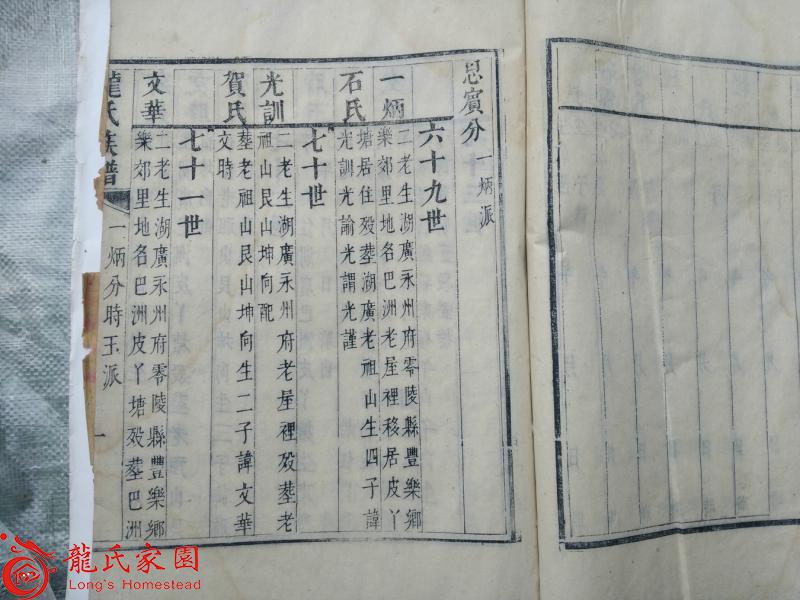 思賓分一炳派
六十九世
一炳
二老生湖廣永州府零陵縣豐樂鄉
樂郊里地名巴洲老屋裡移居皮丫
石氏
塘居住殁塟湖廣老祖山生四子諱
光訓光諭光謂光謹
七十世
光訓
二老生湖廣永州府老屋裡殁塟老
祖山艮山坤向配
賀氏
塟老祖山艮山坤向生二子諱文華
文時
七十一世
文華
二老生湖廣永州府零陵縣豐樂鄉
樂郊里地名巴洲皮丫塘殁塟巴洲
龍氏族譜
一炳分時玉派
一
龍氏家園
Long's Homestead